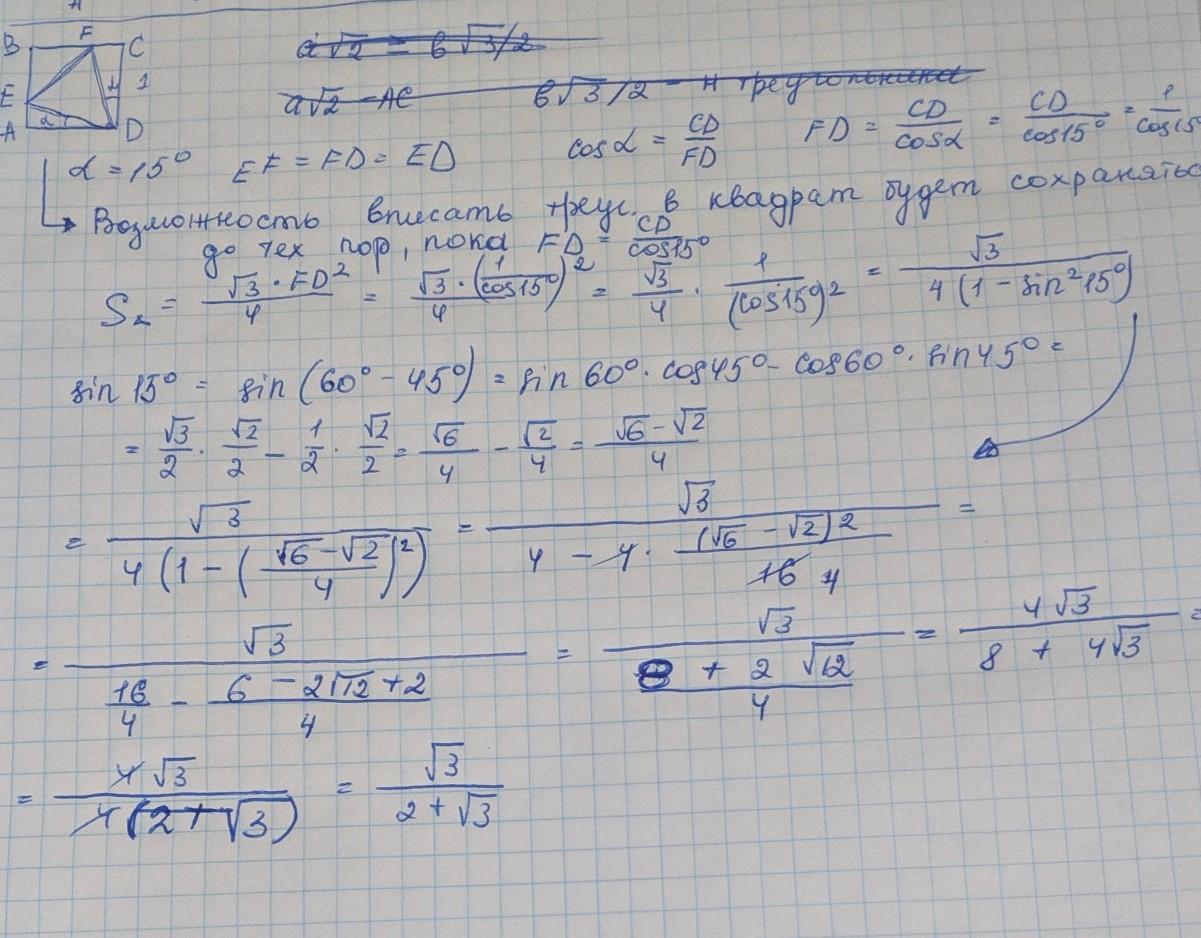 A
B F C
a√2 = b√3/2
E 1 1
a√2 - AC b√3/2 - H треугольника
A α D
cos α = CD/FD FD = CD/cosα = CD/cos15° = 1/cos15°
α = 15° EF = FD = ED
Возможность вписать треуг. в квадрат будет сохраняться
до тех пор, пока FD = CD/cos15°
S▵ = √3 · FD²/4 = √3 · (1/cos15°)²/4 = √3/4 · 1/(cos15°)² = √3/4(1 - sin²15°)
sin 15° = sin (60° - 45°) = sin 60° · cos45° - cos60° · sin45° =
= √3/2 · √2/2 - 1/2 · √2/2 = √6/4 - √2/4 = √6 - √2/4
= √3/4(1 - (√6 - √2/4)²) = √3/4 - 4 · (√6 - √2)²/16 4 =
= √3/16/4 - 6 - 2√12 + 2/4 = √3/8 + 2√12/4 = 4√3/8 + 4√3 =
= 4√3/4(2 + √3) = √3/2 + √3